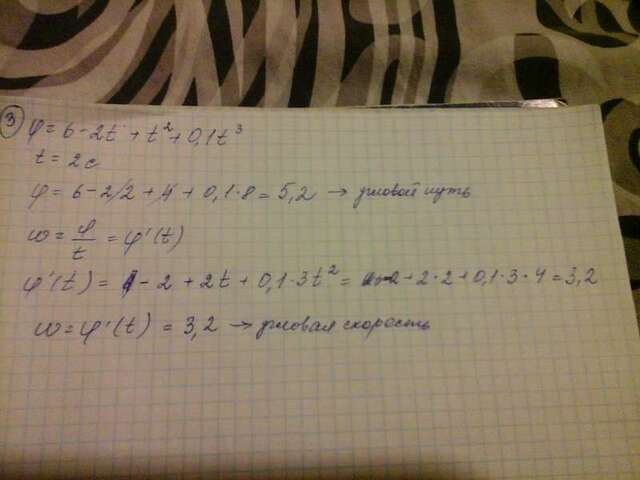 ③ φ = 6 - 2t + t² + 0,1t³
t = 2c
φ = 6 - 2·2 + 4 + 0,1·8 = 5,2 → угловой путь
ω = φ/t = φ'(t)
φ'(t) = - 2 + 2t + 0,1·3t² = - 2 + 2·2 + 0,1·3·4 = 3,2
ω = φ'(t) = 3,2 → угловая скорость